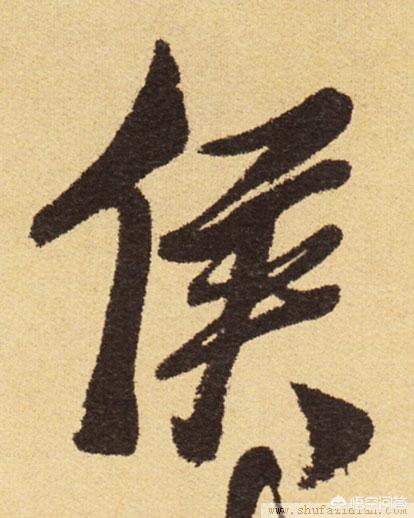 侯
www.shufazidian.com
悟空问答